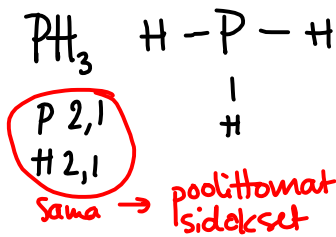 PH₃
H – P – H
|
H
P 2,1
H 2,1
sama → poolittomat
sidokset